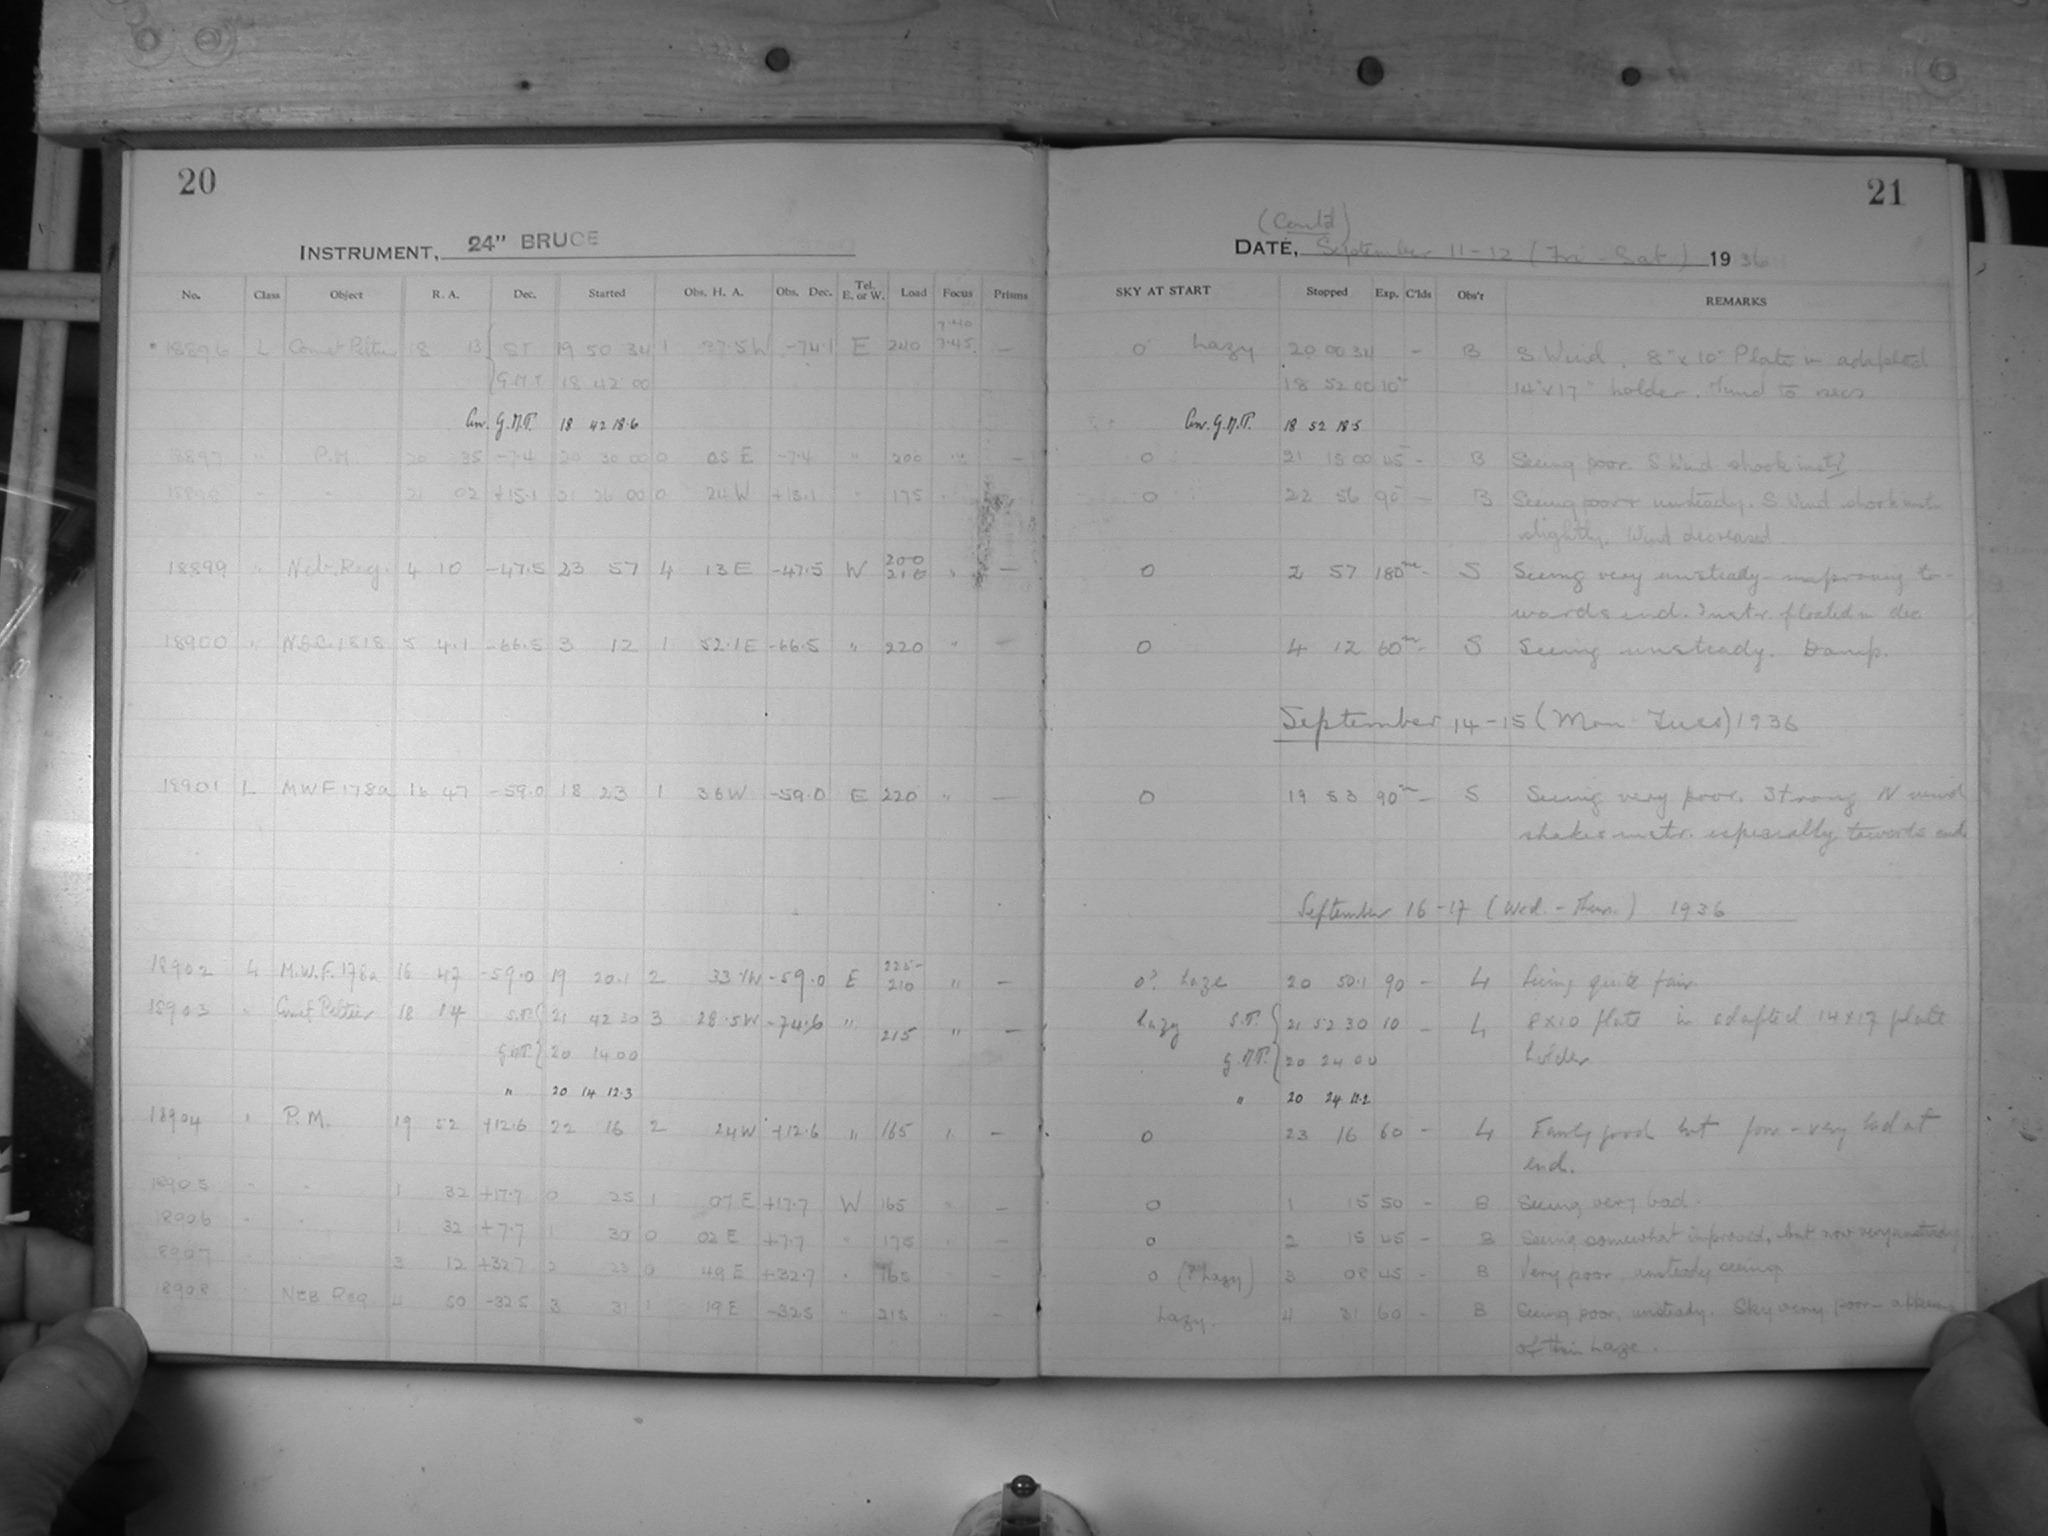 20
INSTRUMENT, 24" BRUCE
No. Class Object R. A. Dec. Started Obs. H. A. Obs. Dec. Tel. E. or W. Load Focus Prisms
18896 L Comet Peltier 18 13 S.T. 19 50 34 1 37.5W -74.1 E 240 7.40 7.45 —
G.M.T. 18 42 00
Corr. G.M.T. 18 42 18.6
18897 " P.M. 20 35 -7.4 20 30 00 0 05 E -7.4 " 200 " —
18898 " " 21 02 +15.1 21 26 00 0 24 W +15.1 " 175 "
18899 " Neb. Reg. 4 10 -47.5 23 57 4 13 E -47.5 W 200 210 " —
18900 " N.G.C. 1818 5 4.1 -66.5 3 12 1 52.1 E -66.5 " 220 " —
18901 L MWF178a 16 47 -59.0 18 23 1 36W -59.0 E 220 " —
18902 L M.W.F. 178a 16 47 -59.0 19 20.1 2 33 W -59.0 E 225- 210 " —
18903 " Comet Peltier 18 14 S.T. 21 42 30 3 28.5W -74.6 " 215 " —
G.M.T. 20 14 00
" 20 14 12.3
18904 " P.M. 19 52 +12.6 22 16 2 24W +12.6 " 165 " —
18905 " " 1 32 +17.7 0 25 1 07 E +17.7 W 165 " —
18906 " " 1 32 +7.7 1 30 0 02 E +7.7 " 175 " —
18907 " " 3 12 +32.7 2 23 0 49 E +32.7 " 165 —
18908 " NEB Reg 4 50 -32.5 3 31 1 19 E -32.5 " 215 —
21
(Cont'd)
DATE, September 11-12 (Fri - Sat) 1936
SKY AT START Stopped Exp. C'lds Obs'r REMARKS
0 hazy 20 00 34 - B S Wind. 8" x 10" Plate in adapted
18 52 00 10m 14" x 17" holder. Timed to secs
Corr. G.M.T. 18 52 18.5
0 21 15 00 45 - B Seeing poor. S Wind shook instr.
0 22 56 90 — B Seeing poor & unsteady. S Wind shook instr.
slightly. Wind decreased.
0 2 57 180m - S Seeing very unsteady - improving to-
wards end. Instr. floated in dec
0 4 12 60m - S Seeing unsteady. Damp.
September 14-15 (Mon - Tues) 1936
0 19 53 90m — S Seeing very poor. Strong N wind
shakes instr. especially towards end.
September 16-17 (Wed. - Thur.) 1936
0? haze 20 50.1 90 - L Seeing quite fair.
hazy S.T. 21 52 30 10 - L 8x10 plate in adapted 14x17 plate
G.M.T. 20 24 00 holder
" 20 24 12.2
0 23 16 60 - L Fairly good but poor - very bad at
end.
0 1 15 50 - B Seeing very bad.
0 2 15 45 - B Seeing somewhat improved, but now very unsteady
0 (? hazy) 3 08 45 - B Very poor, unsteady seeing
hazy. 4 31 60 - B Seeing poor, unsteady. Sky very poor -
of thin haze.